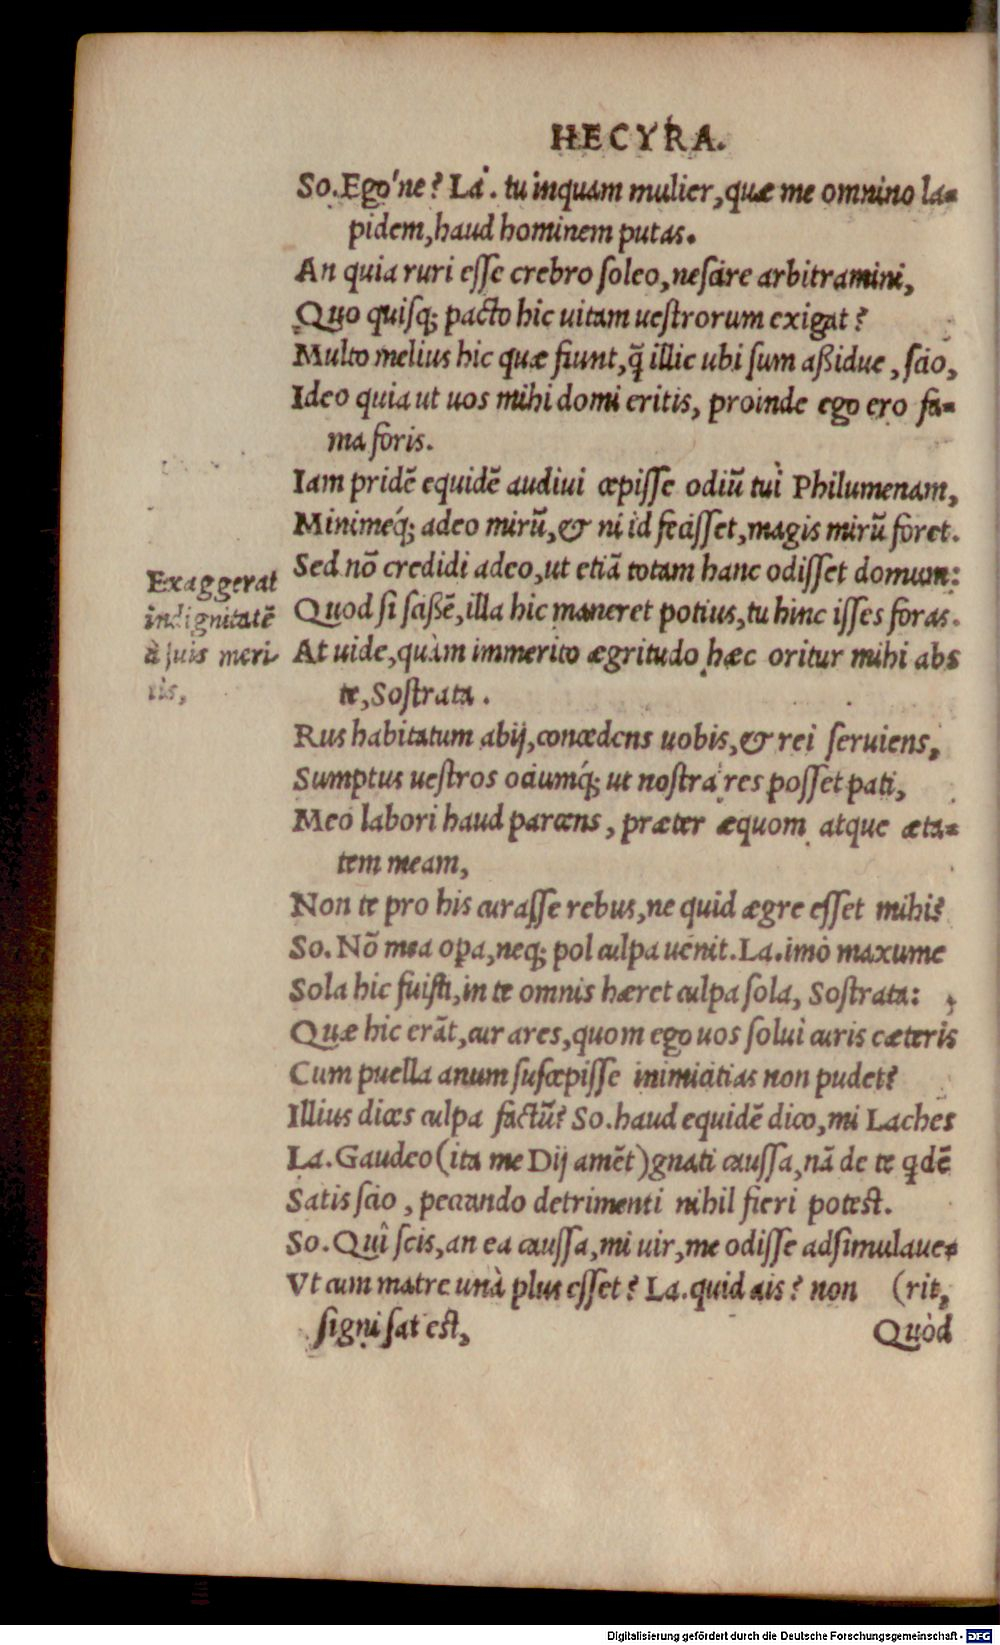 HECYRA.
So. Ego'ne? La. tu inquam mulier, quæ me omnino la=
pidem, haud hominem putas.
An quia ruri eſſe crebro ſoleo, neſcire arbitramini,
Quo quiſq; pacto hic uitam ueſtrorum exigat?
Multo melius hic quæ fiunt, q̃ illic ubi ſum aßidue, ſcio,
Ideo quia ut uos mihi domi eritis, proinde ego ero fa=
ma foris.
Iam pridẽ equidẽ audiui cœpiſſe odiũ tuì Philumenam,
Minimeq́; adeo mirũ, & ni id feciſſet, magis mirũ foret.
Sed nõ credidi adeo, ut etiã totam hanc odiſſet domum:
Exaggerat
indignitatẽ
à ſuis meri
tis,
Quod ſi ſcißẽ, illa hic maneret potius, tu hinc iſſes foras.
At uide, quàm immerito ægritudo hæc oritur mihi abs
te, Soſtrata.
Rus habitatum abij, concedens uobis, & rei ſeruiens,
Sumptus ueſtros ociumq́; ut noſtra res poſſet pati,
Meo labori haud parcens, præter æquom atque æta=
tem meam,
Non te pro his curaſſe rebus, ne quid ægre eſſet mihi?
So. Nõ mea op̱a, neq; pol culpa uenit. La. imò maxume
Sola hic fuiſti, in te omnis hæret culpa ſola, Soſtrata:
Quæ hic erãt, cur ares, quom ego uos ſoluì curis cæteris
Cum puella anum ſuſcepiſſe inimicitias non pudet?
Illius dices culpa factũ? So. haud equidẽ dico, mi Laches
La. Gaudeo (ita me Dij amẽt) gnati cauſſa, nã de te qdẽ
Satis ſcio, peccando detrimenti nihil fieri poteſt.
So. Quî ſcis, an ea cauſſa, mi uir, me odiſſe adſimulaue=
Vt cum matre unà plus eſſet? La. quid ais? non (rit,
ſigni ſat eſt,
Quòd
Digitalisierung gefördert durch die Deutsche Forschungsgemeinschaft - DFG